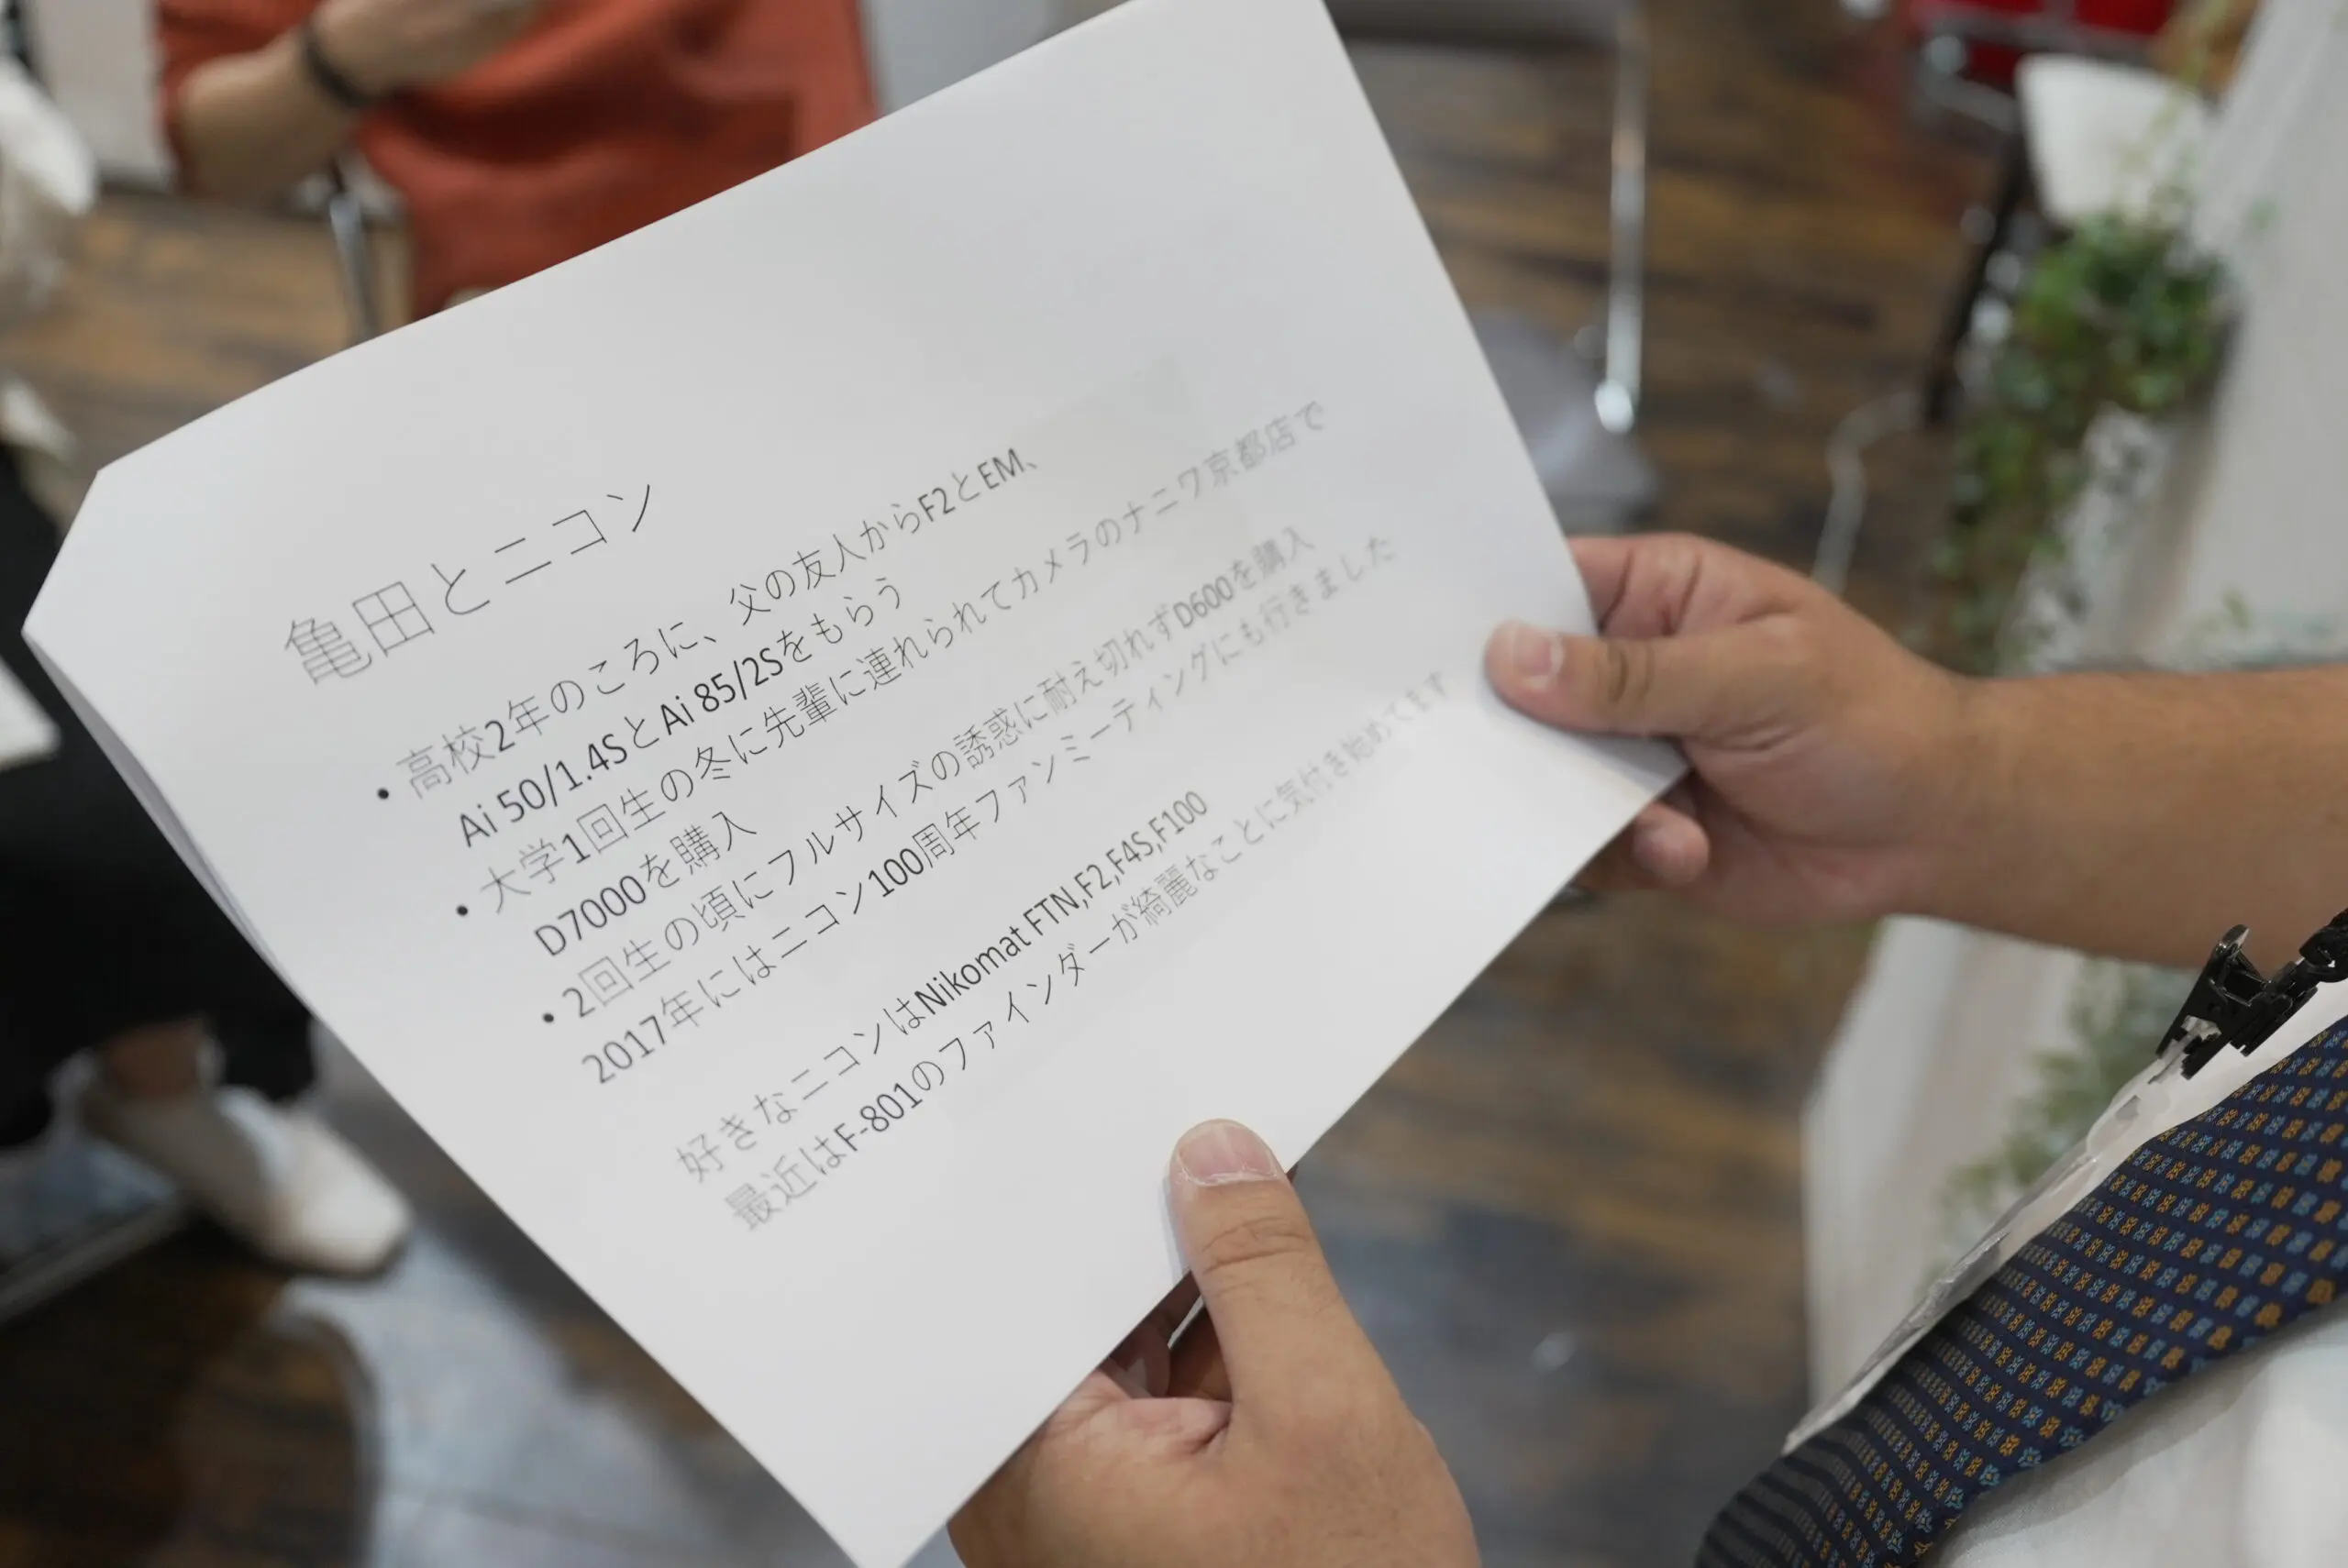 亀田とニコン
• 高校2年のころに、父の友人からF2とEM、
Ai 50/1.4SとAi 85/2Sをもらう
• 大学1回生の冬に先輩に連れられてカメラのナニワ京都店で
D7000を購入
• 2回生の頃にフルサイズの誘惑に耐え切れずD600を購入
2017年にはニコン100周年ファンミーティングにも行きました
好きなニコンはNikomat FTN,F2,F4S,F100
最近はF-801のファインダーが綺麗なことに気付き始めてます